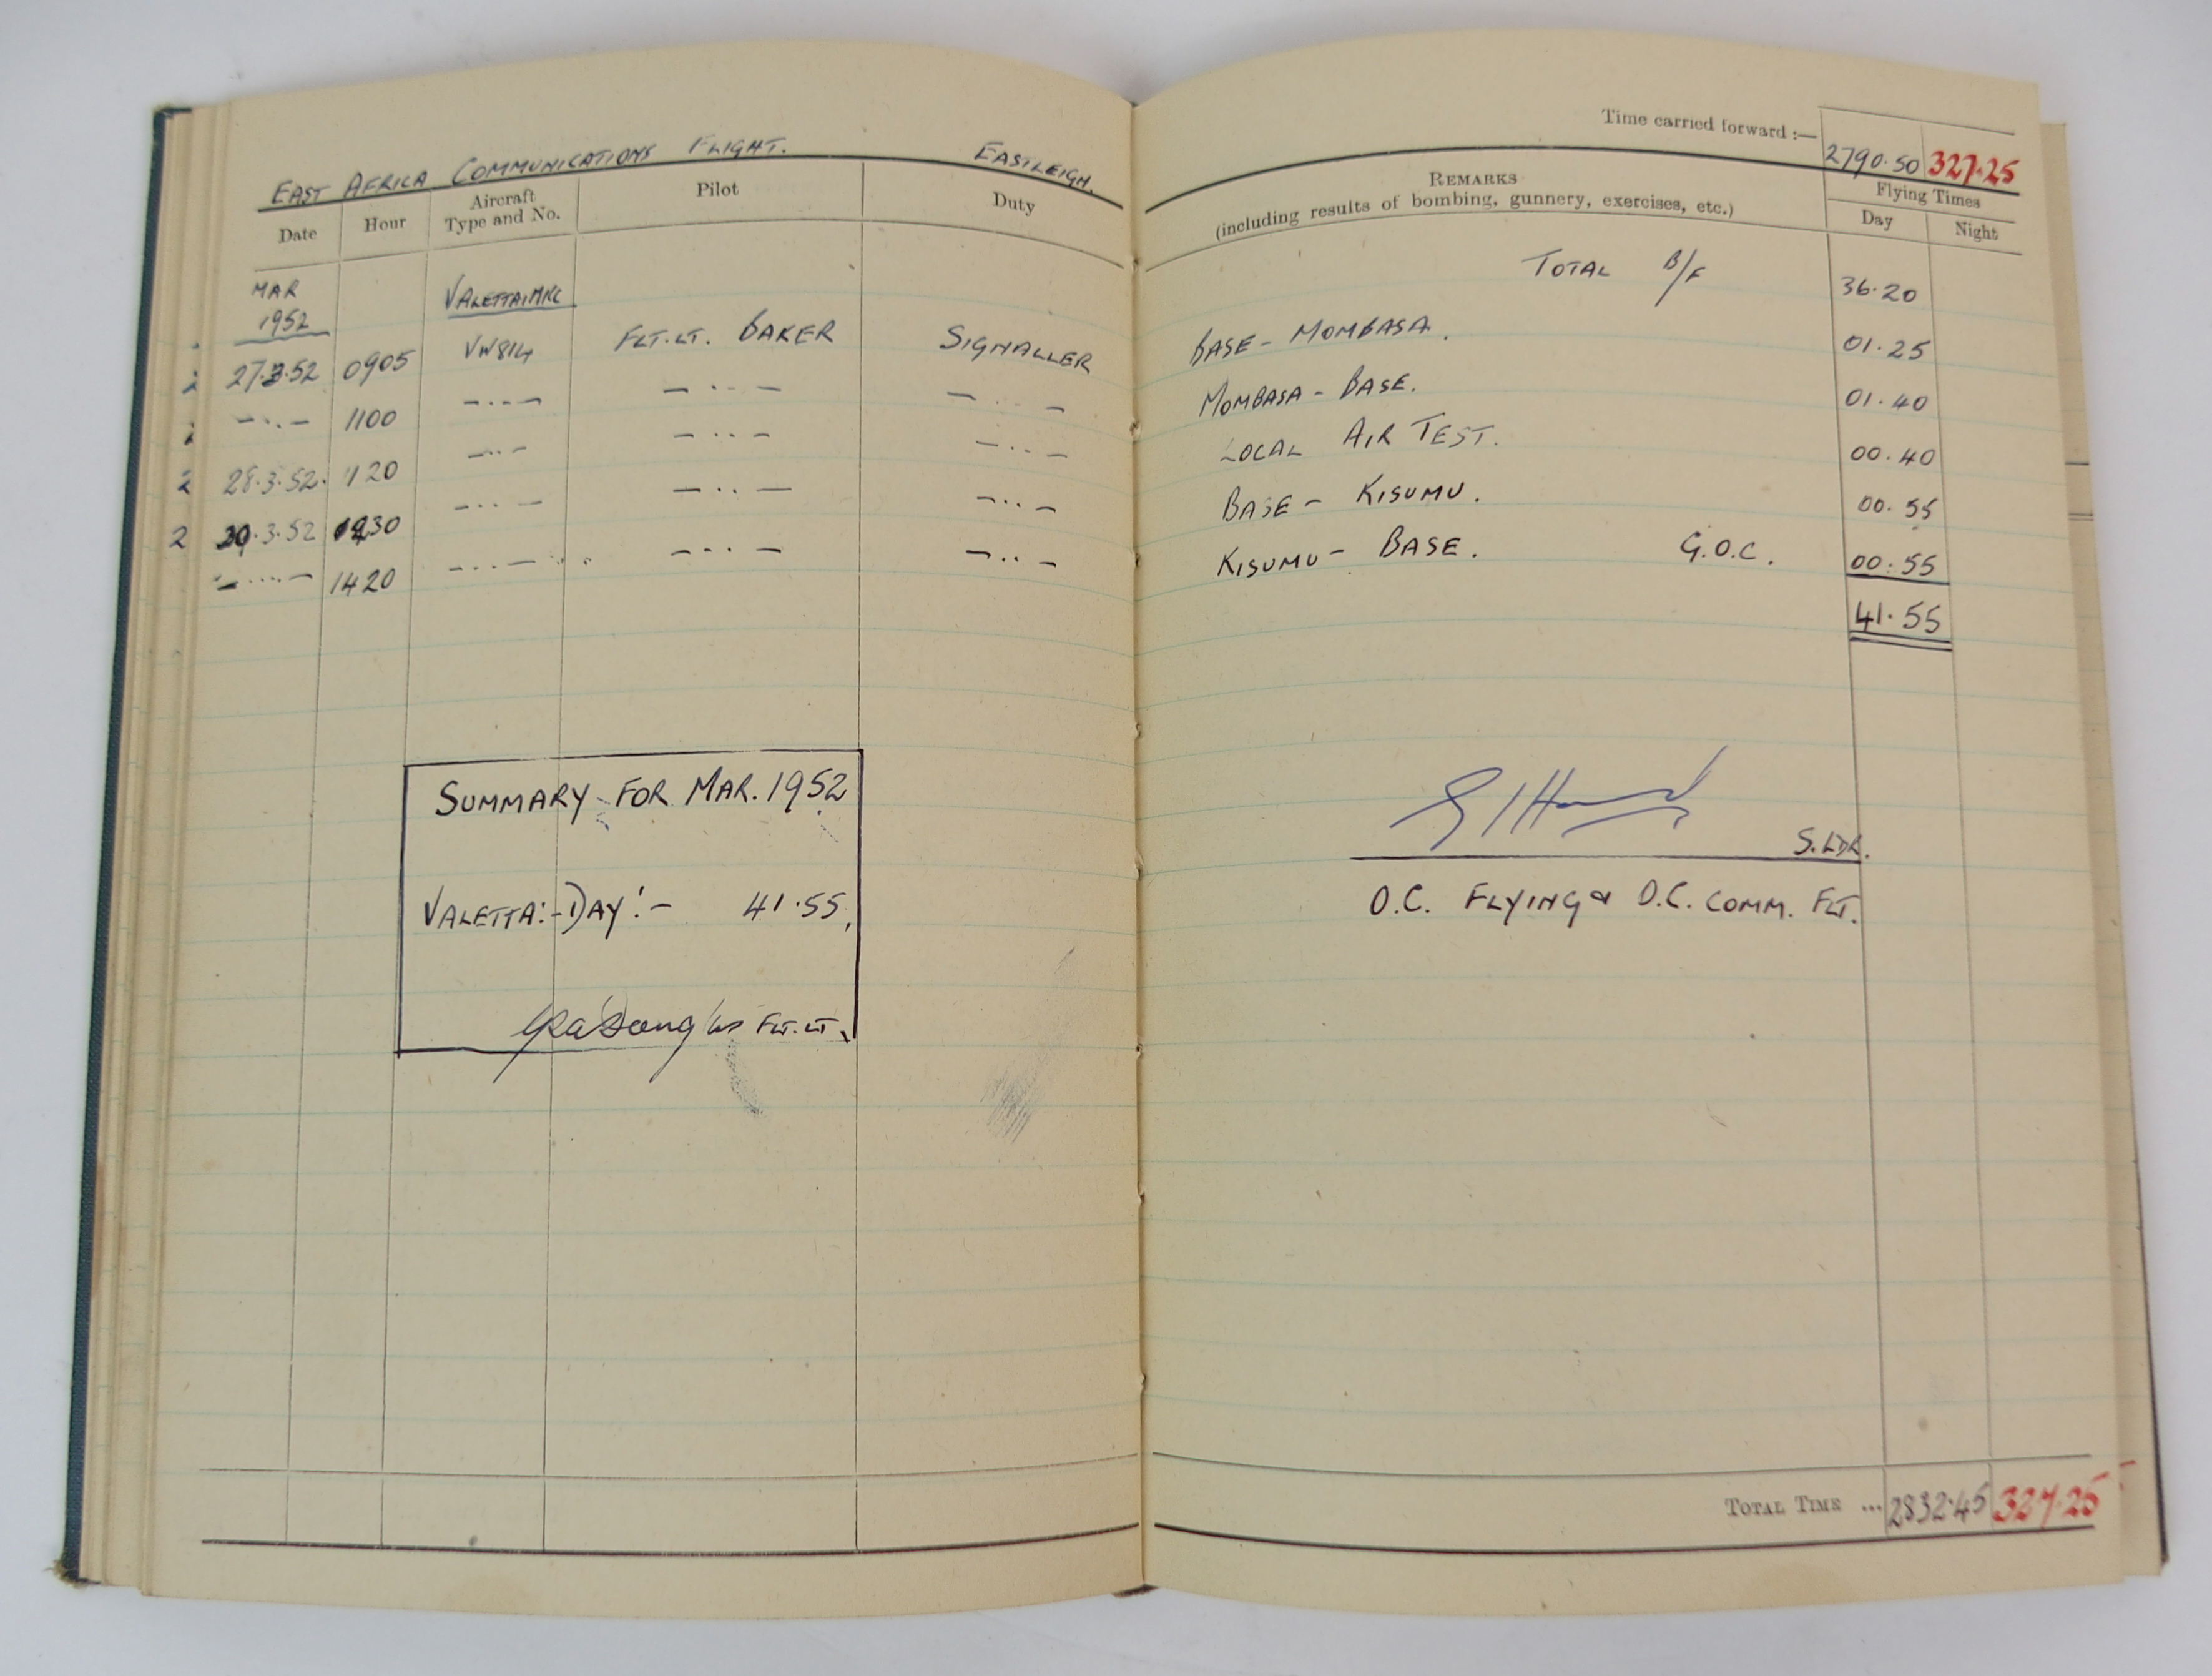 EAST AFRICA COMMUNICATIONS FLIGHT. EASTLEIGH.
Date Hour Aircraft Type and No. Pilot Duty
MAR 1952 VALETTA
27.3.52 0905 VW814 FLT.LT. BAKER SIGNALLER
—··— 1100 —··— —··— —··—
28.3.52. 1120 —··— —··— —··—
.3.52 —··— —··— —··—
—··— 1420 —··— —··— —··—
SUMMARY FOR MAR. 1952
VALETTA:- DAY:- 41.55.
FLT.LT.
Time carried forward :— 2790.50 327.25
REMARKS
(including results of bombing, gunnery, exercises, etc.)
Flying Times
Day Night
TOTAL B/F 36.20
BASE - MOMBASA. 01.25
MOMBASA - BASE. 01.40
LOCAL AIR TEST. 00.40
BASE - KISUMU. 00.55
KISUMU - BASE. G.O.C. 00.55
41.55
S.LDR.
O.C. FLYING & O.C. COMM. FLT.
TOTAL TIME ... 2832.45 327.25